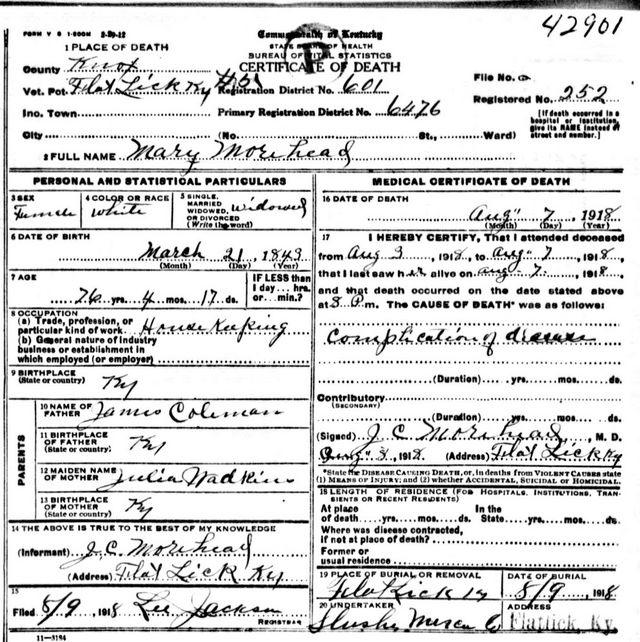 42901
FORM V S 1-500M 2-20-12
Commonwealth of Kentucky
STATE BOARD OF HEALTH
BUREAU OF VITAL STATISTICS
CERTIFICATE OF DEATH
P
1 PLACE OF DEATH
County Knox
Vot. Pct. Flat Lick Ky #5
Registration District No. 601
File No.
Inc. Town
Primary Registration District No. 6476
Registered No. 252
City (No. St., Ward)
[If death occurred in a hospital or institution, give its NAME instead of street and number.]
2 FULL NAME Mary Morehead
PERSONAL AND STATISTICAL PARTICULARS
3 SEX Female
4 COLOR OR RACE White
5 SINGLE, MARRIED WIDOWED, OR DIVORCED (Write the word) Widowed
6 DATE OF BIRTH
March 21, 1843
(Month) (Day) (Year)
7 AGE
76 yrs. 4 mos. 17 ds.
IF LESS than 1 day... hrs. or... min.?
8 OCCUPATION
(a) Trade, profession, or particular kind of work House Keeping
(b) General nature of industry business or establishment in which employed (or employer)
9 BIRTHPLACE (State or country) Ky
PARENTS
10 NAME OF FATHER James Coleman
11 BIRTHPLACE OF FATHER (State or country) Ky
12 MAIDEN NAME OF MOTHER Julia Wadkins
13 BIRTHPLACE OF MOTHER (State or country) Ky
14 THE ABOVE IS TRUE TO THE BEST OF MY KNOWLEDGE
(Informant) J.C. Morehead
(Address) Flat Lick Ky
15
Filed 8/9, 1918 Lee Jackson
REGISTRAR
11-3184
MEDICAL CERTIFICATE OF DEATH
16 DATE OF DEATH
Aug" 7, 1918
(Month) (Day) (Year)
17 I HEREBY CERTIFY, That I attended deceased
from Aug 3, 1918, to Aug" 7, 1918,
that I last saw her alive on Aug" 7, 1918,
and that death occurred on the date stated above
at 8 P.m. The CAUSE OF DEATH* was as follows:
Complication of disease
(Duration) yrs. mos. ds.
Contributory
(SECONDARY)
(Duration) yrs. mos. ds.
(Signed) J.C. Morehead, M. D.
1918 (Address) Flat Lick Ky
*State the DISEASE CAUSING DEATH, or, in deaths from VIOLENT CAUSES state (1) MEANS OF INJURY; and (2) whether ACCIDENTAL, SUICIDAL or HOMICIDAL.
18 LENGTH OF RESIDENCE (FOR HOSPITALS, INSTITUTIONS, TRANSIENTS OR RECENT RESIDENTS)
At place of death yrs. mos. ds. In the State yrs. mos. ds.
Where was disease contracted, if not at place of death?
Former or usual residence
19 PLACE OF BURIAL OR REMOVAL
Flat Lick Ky
DATE OF BURIAL
8/9, 1918
20 UNDERTAKER
ADDRESS
Flatlick, Ky.